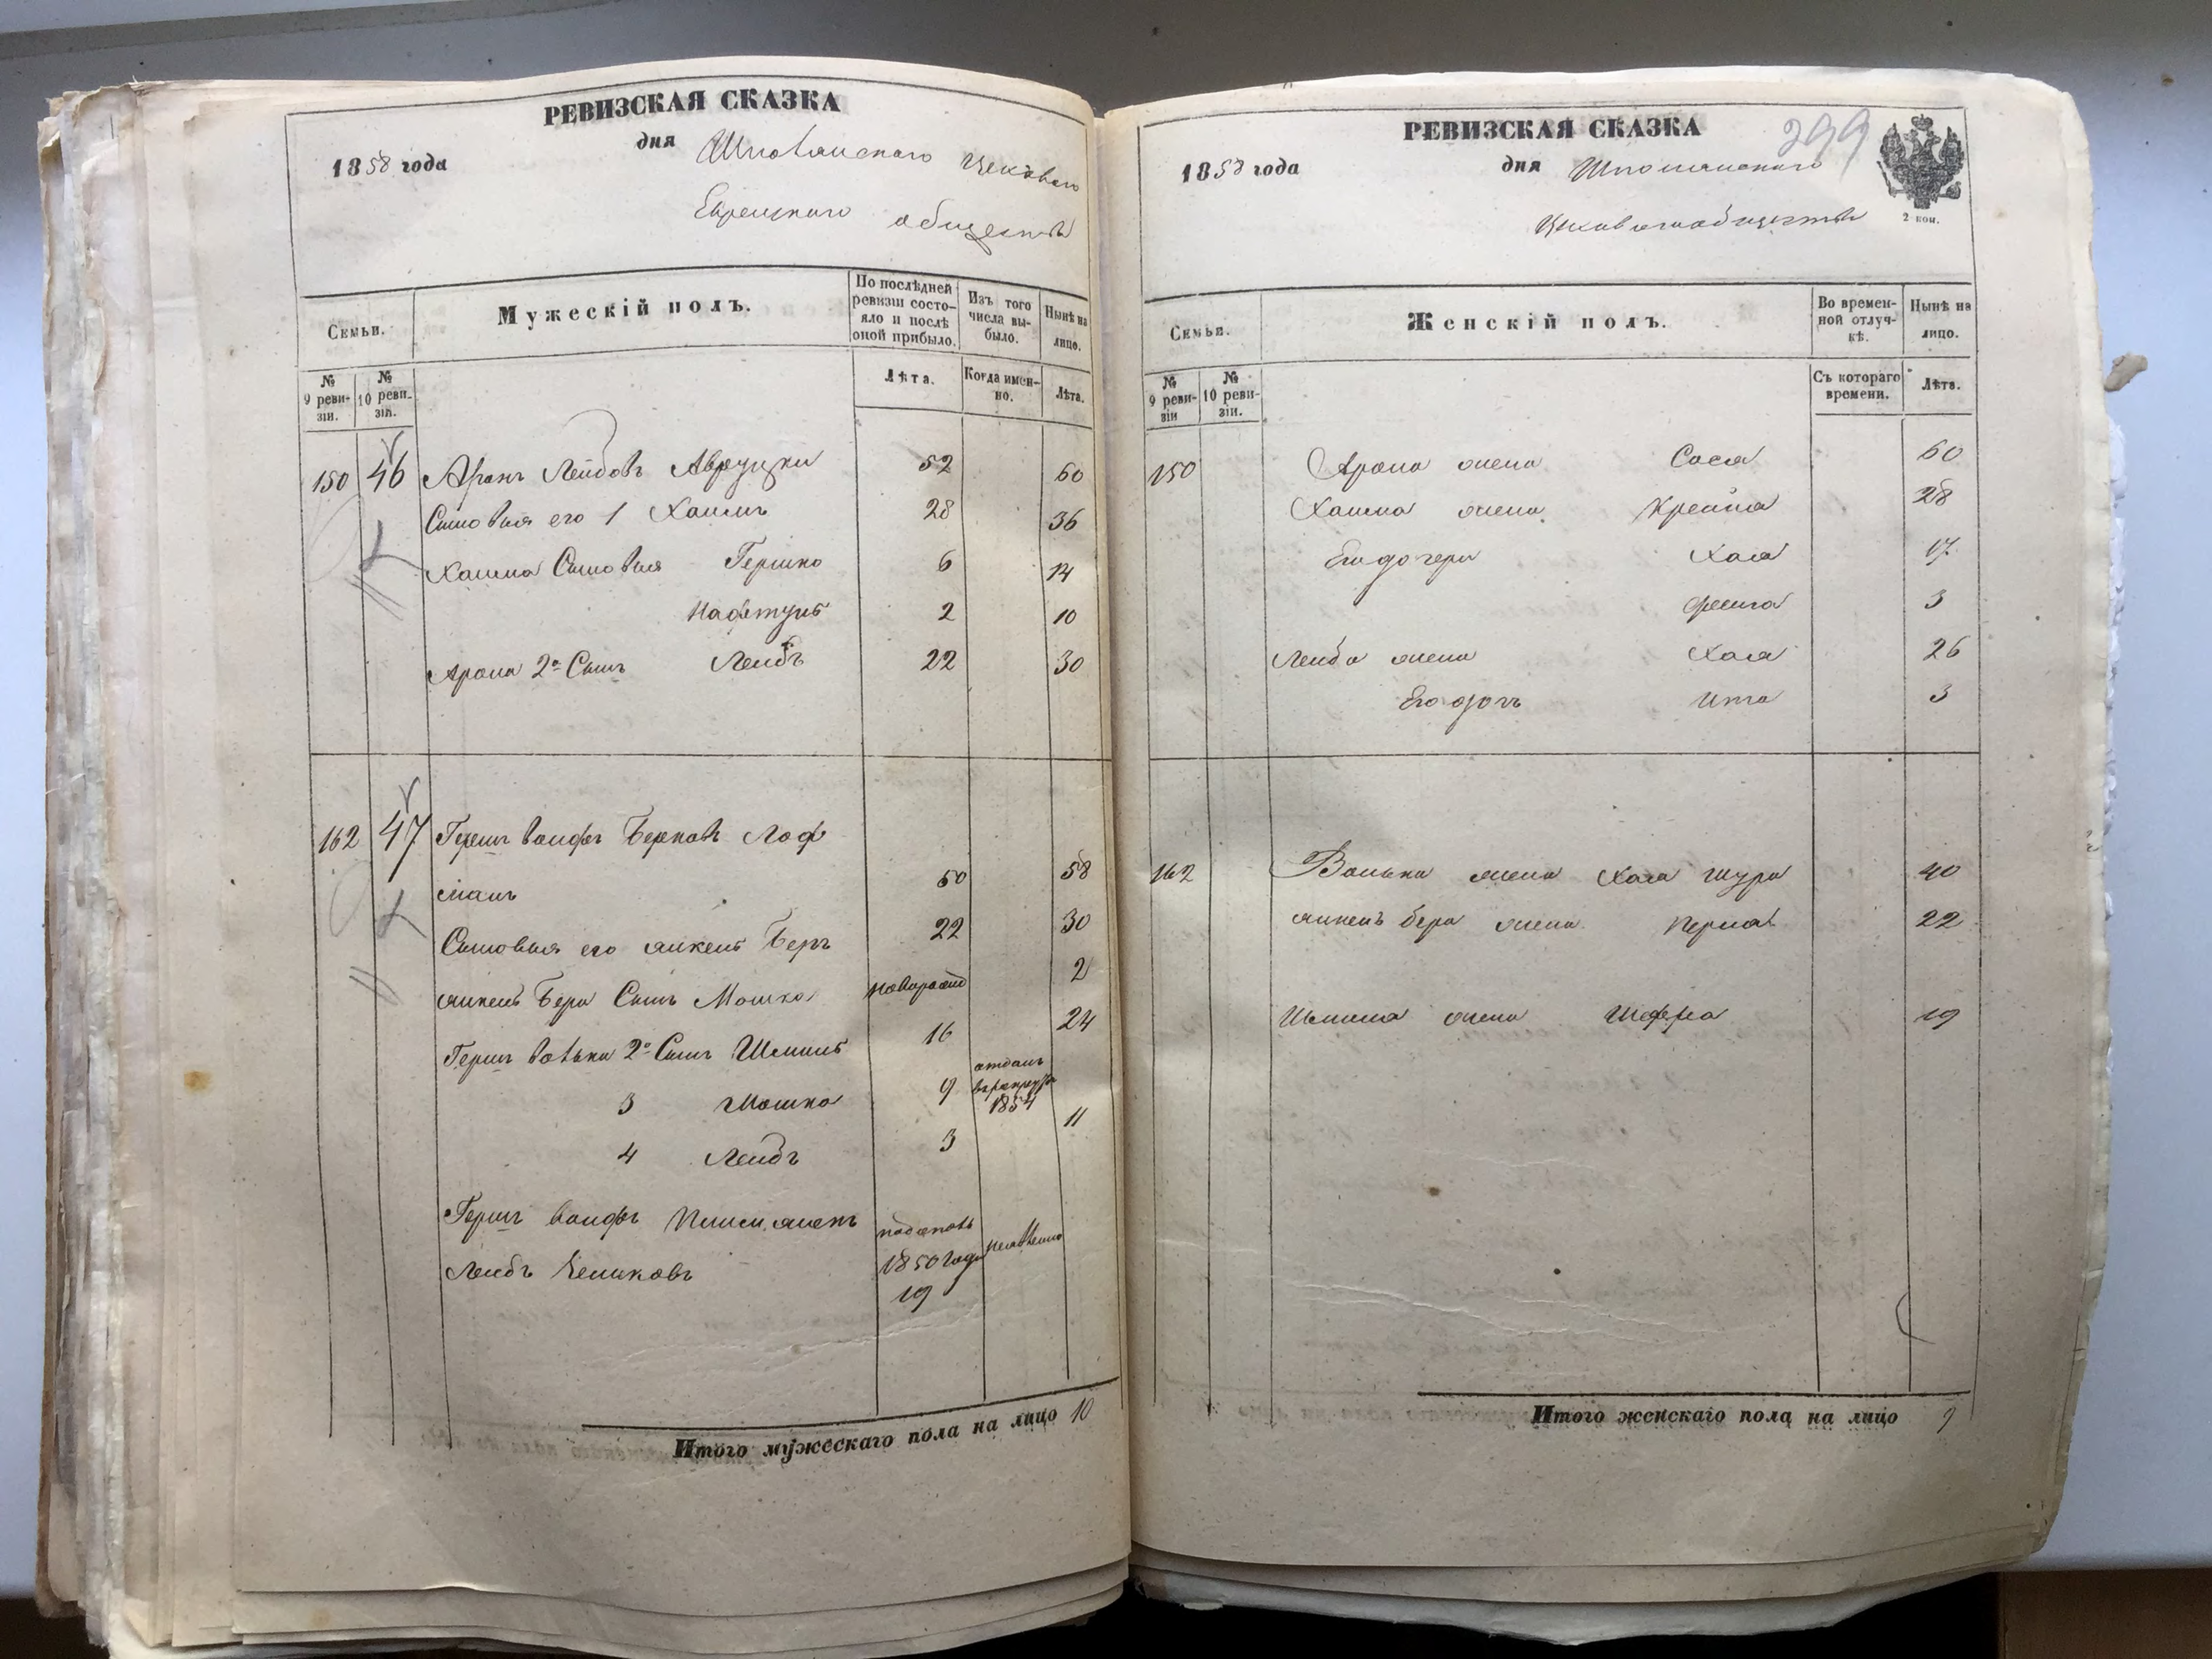 РЕВИЗСКАЯ СКАЗКА
1858 года
дня Шполянскаго Цеховаго
Еврейскаго общества
Семьи.
Мужескій полъ.
По послѣдней ревизіи состояло и послѣ оной прибыло.
Изъ того числа выбыло.
Нынѣ на лицо.
№ 9 ревизіи.
№ 10 ревизіи.
Лѣта.
Когда именно.
Лѣта.
150 46 Аронъ Лейбовъ Авруцки 52 60
Сыновья его 1 Хаимъ 28 36
Хаима Сыновья Гершко 6 14
Нафтулъ 2 10
Арона 2й Сынъ Лейбъ 22 30
162 47 Герш Вольфъ Берковъ Лоф
манъ 50 58
Сыновья его Янкель Беръ 22 30
Янкель Бера Сынъ Мошко новорожд 2
Герш Волька 2й Сынъ Шмиль 16 24
3 Мошко 9 отданъ в рекруты 1854
4 Лейбъ 3 11
Герш Вольфъ
Лейбъ
1850 года
19
Итого мужескаго пола на лицо 10
РЕВИЗСКАЯ СКАЗКА
299
1858 года
дня Шполянскаго
Цеховаго общества
2 коп.
Семьи.
Женскій полъ.
Во временной отлучкѣ.
Нынѣ на лицо.
№ 9 ревизіи
№ 10 ревизіи.
Съ котораго времени.
Лѣта.
150 Арона жена Сося 60
Хаима жена Крейна 28
Его дочери Хая 17
Фейга 3
Лейба жена Хая 26
Его дочь Ита 3
162 Волька жена Хая Шура 40
Янкель Бера жена Перла 22
Шмиля жена Шифра 19
Итого женскаго пола на лицо 9